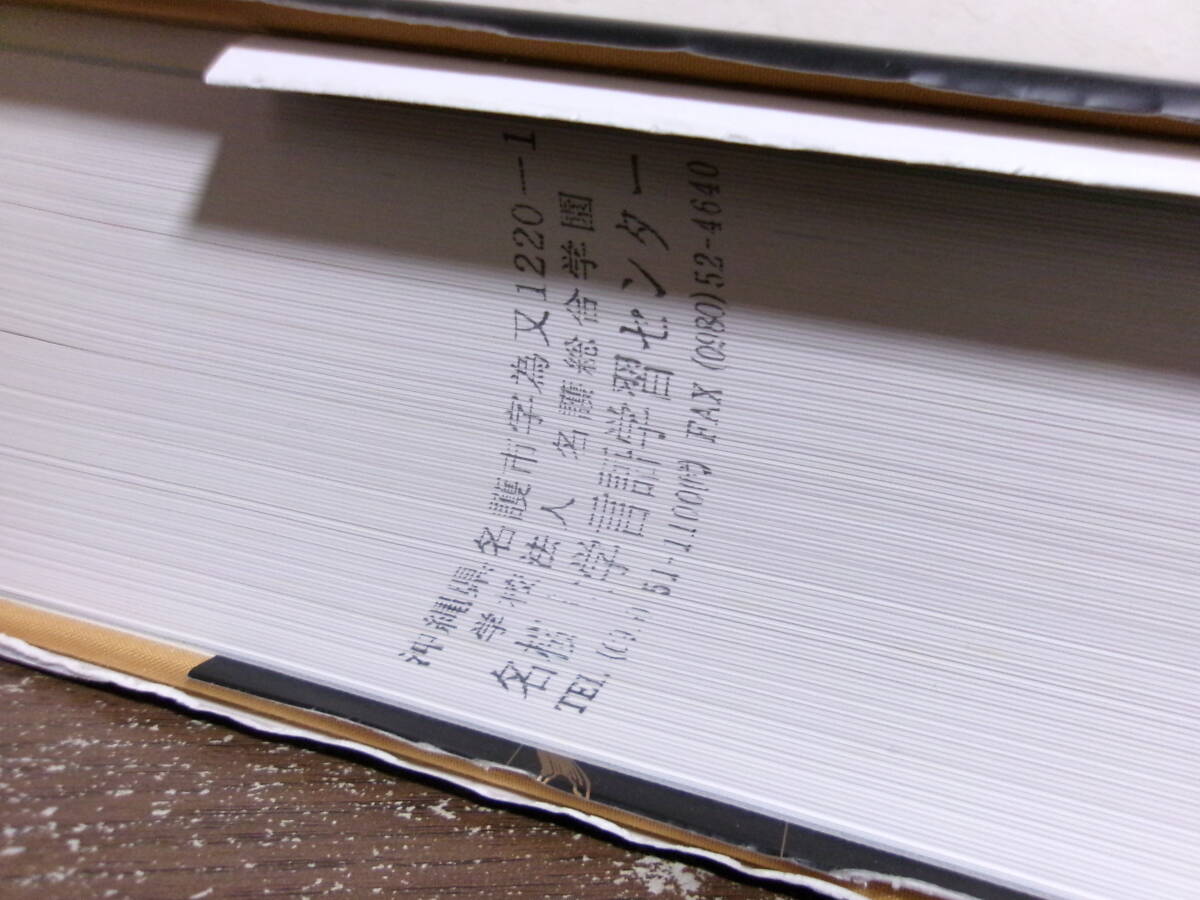 沖縄県名護市字為又1220—1
学校法人 名護総合学園
名桜大学言語学習センター
TEL. 51-1100(代) FAX (0980)52-4640